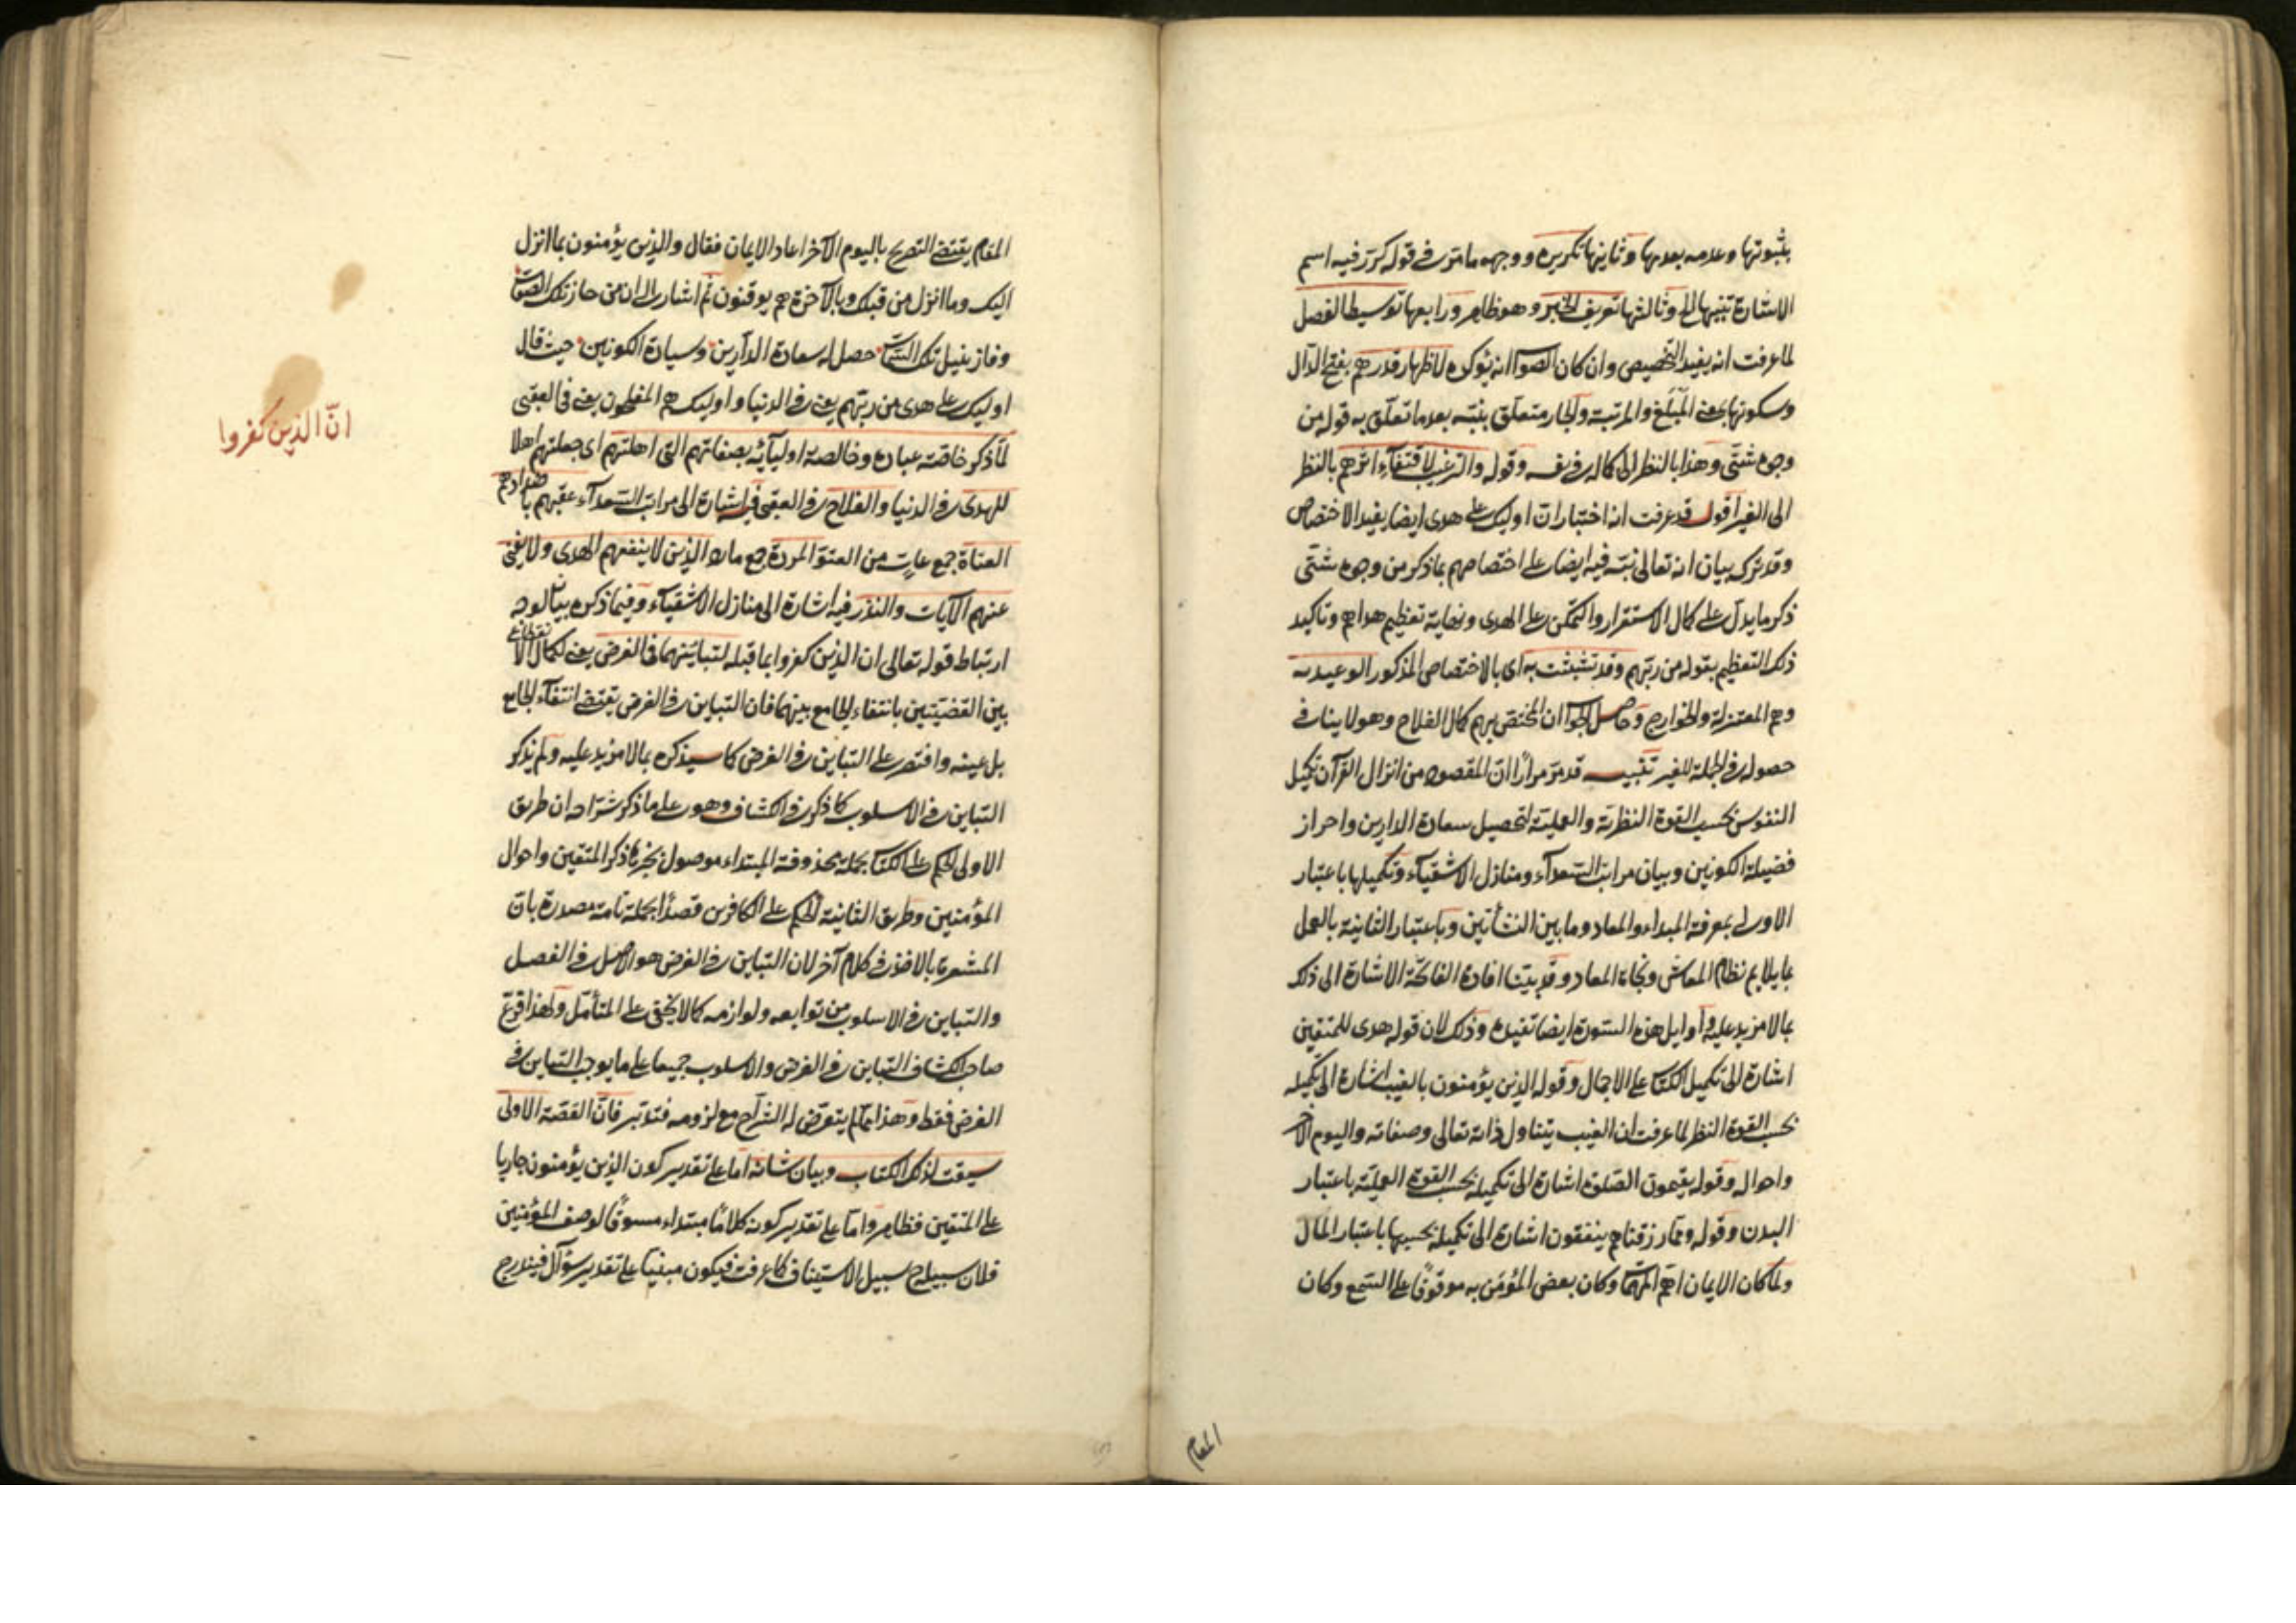 بثبوتها وعدمه بعدمها وثانيها تكريره ووجهه ما مر في قوله كرر فيه اسم
الاشارة تنبيها الخ وثالثها تعريف الخبر وهو ظاهر ورابعها توسيط الفصل
لما عرفت انه يفيد التخصيص وان كان الصوا انه يؤكده لاظهار قدرهم بفتح الدال
وسكونها بمعنى المبلغ والمرتبة والجار متعلق بنبه بعد ما تعلق به قوله من
وجوه شتى وهذا بالنظر الى كماله في نفسه وقوله والترغيب لاقتفاء اثرهم بالنظر
الى الغير اقول قد عرفت انه اختار ان اوليك على هدى ايضا يفيد الاختصاص
وقد ترك بيان انه تعالى نبه فيه ايضا على اختصاصهم بما ذكر من وجوه شتى
ذكر ما يدل على كمال الاستقرار والتمكن على الهدى ونهاية تعظيم هداهم وتاكيد
ذلك التعظيم بقوله من ربهم وقد تشبثت به اى بالاختصاص المذكور الوعيدية
وهم المعتزلة والخوارج وحاصل الجوا ان المختص بهم كمال الفلاح وهو لا ينافي
حصوله في الجملة للغير تنبيه قد مر مرارا ان المقصود من انزال القرآن تكميل
النفوس بحسب القوة النظرية والعملية لتحصيل سعادة الدارين واحراز
فضيلة الكونين وبيان مراتب السعدآء ومنازل الاشقيآء وتكميلها باعتبار
الاولى بمعرفة المبداء والمعاد وما بين النشأتين وباعتبار الثانية بالعمل
بما يلايم نظام المعاش ونجاة المعاد وقد بينا افادة الفاتحة الاشارة الى ذلك
بما لا مزيد عليه واوايل هذه السورة ايضا تفيده وذلك لان قوله هدى للمتقين
اشارة الى تكميل الكتا على الاجمال وقوله الذين يؤمنون بالغيب اشارة الى تكميله
بحسب القوة النظر لما عرفت ان الغيب يتناول ذاته تعالى وصفاته واليوم الآخر
واحواله وقوله يقيمون الصلوة اشارة الى تكميله بحسب القوة العملية باعتبار
البدن وقوله ومما رزقناهم ينفقون اشارة الى تكميله بحسبها باعتبار المال
ولما كان الايمان اهم المهما وكان بعض المؤمن به موقوفا على السمع وكان
المقام
المقام يقتضى التصريح باليوم الآخر اعاد الايمان فقال والذين يؤمنون بما انزل
اليك وما انزل من قبلك وبالآخرة هم يوقنون ثم اشار الى ان من حاز تلك الصفات
وفاز بنيل تلك حصل له سعادة الدارين وسيادة الكونين حيث قال
اوليك على هدى من ربهم يعنى في الدنيا واوليك هم المفلحون يعنى في العقبى
لما ذكر خاصة عباده وخالصة اوليآئه بصفاتهم التى اهلتهم اى جعلتهم اهلا
للهدى في الدنيا والفلاح في العقبى فيه اشارة الى مراتب السعدآء عقبهم باضدادهم
العتاة جمع عات من العتو المردة جمع مارد الذين لا ينفعهم الهدى ولا يغنى
عنهم الآيات والنذر فيه اشارة الى منازل الاشقيآء وفيما ذكره بيان لوجه
ارتباط قوله تعالى ان الذين كفروا بما قبله لتباينهما في الغرض يعنى لكمال الانقطاع
بين القضيتين بانتفاء الجامع بينهما فان التباين في الغرض يقتضى انتفآء الجامع
بل عينه واقتصر على التباين في الغرض كما سيذكره بما لا مزيد عليه ولم يذكر
التباين في الاسلوب كما ذكر في الكشاف وهو على ما ذكر شراحه ان طريق
الاولى الحكم على الكتا بجملة محذوفة المبتداء موصول بخبر ما ذكر المتقين واحوال
المؤمنين وطريق الثانية الحكم على الكافرين قصدا بجملة تامة مصدرة بان
المشعرة بالاخذ في كلام آخر لان التباين في الغرض هو الاصل في الفصل
والتباين في الاسلوب من توابعه ولوازمه كما لا يخفى على المتأمل ولهذا فرع
صاحب الكشاف التباين في الغرض والاسلوب جميعا على ما يوجب التباين في
الغرض فقط وهذا مما لم يتعرض له الشراح مع لزومه فتدبر فان القصة الاولى
سيقت لذكر الكتاب وبيان شانه اما على تقدير كون الذين يؤمنون جاريا
على المتقين فظاهر واما على تقدير كونه كلاما مبتداء مسوقا لوصف المؤمنين
فلان سبيله ح سبيل الاستيناف كما عرفت فيكون مبنيا على تقدير سؤال فيندرج
انّ الذين كفروا